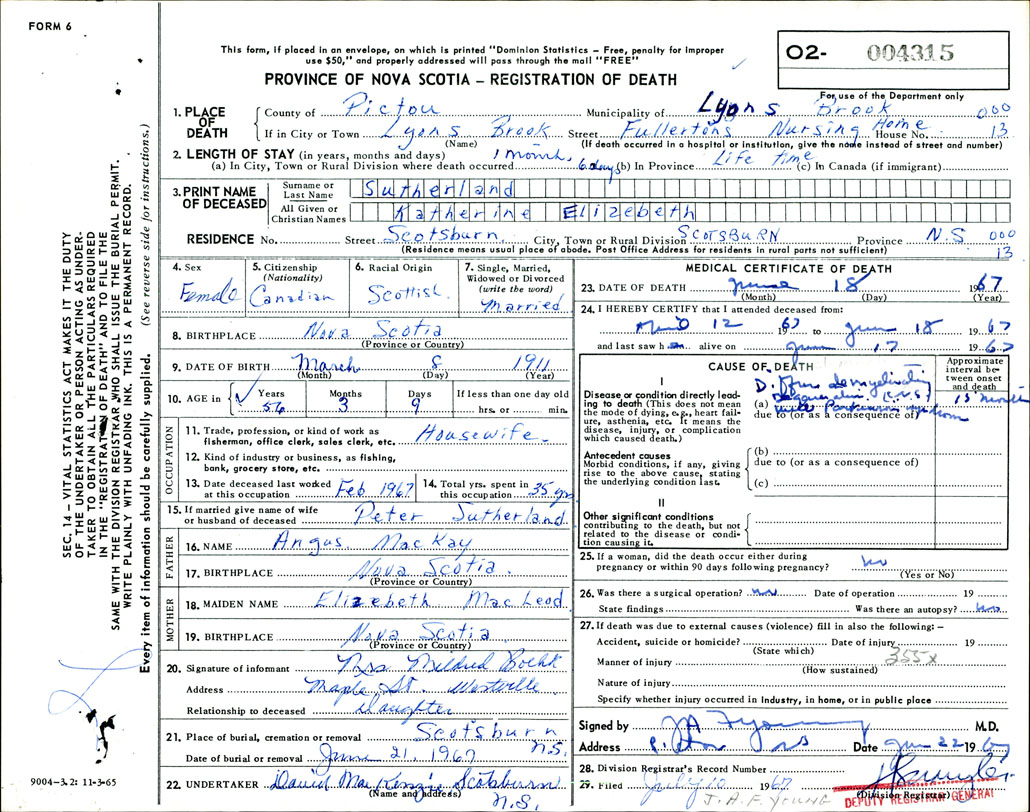 FORM 6
This form, if placed in an envelope, on which is printed "Dominion Statistics – Free, penalty for improper
use $50," and properly addressed will pass through the mail "FREE"
PROVINCE OF NOVA SCOTIA – REGISTRATION OF DEATH
O2- 004315
For use of the Department only
1. PLACE OF DEATH
County of Pictou Municipality of Lyons Brook 000
If in City or Town Lyons Brook Street Fullertons Nursing Home House No. 13
(Name) (If death occurred in a hospital or institution, give the name instead of street and number)
2. LENGTH OF STAY (in years, months and days)
(a) In City, Town or Rural Division where death occurred 1 month, 6 days (b) In Province Life time (c) In Canada (if immigrant)
3. PRINT NAME OF DECEASED
Surname or Last Name Sutherland
All Given or Christian Names Katherine Elizebeth
RESIDENCE No. Street Scotsburn City, Town or Rural Division SCOTSBURN Province N.S. 000
(Residence means usual place of abode. Post Office Address for residents in rural parts not sufficient) 13
4. Sex Female
5. Citizenship (Nationality) Canadian
6. Racial Origin Scottish
7. Single, Married, Widowed or Divorced (write the word) Married
8. BIRTHPLACE Nova Scotia
(Province or Country)
9. DATE OF BIRTH March 8 1911
(Month) (Day) (Year)
10. AGE in Years 56 Months 3 Days 9 If less than one day old hrs. or min.
OCCUPATION
11. Trade, profession, or kind of work as fisherman, office clerk, sales clerk, etc. Housewife
12. Kind of industry or business, as fishing, bank, grocery store, etc.
13. Date deceased last worked at this occupation Feb 1967
14. Total yrs. spent in this occupation 35 yrs
15. If married give name of wife or husband of deceased Peter Sutherland
FATHER
16. NAME Angus MacKay
17. BIRTHPLACE Nova Scotia
(Province or Country)
MOTHER
18. MAIDEN NAME Elizebeth MacLeod
19. BIRTHPLACE Nova Scotia
(Province or Country)
20. Signature of informant Mrs Mildred
Address Maple St. Westville
Relationship to deceased Daughter
21. Place of burial, cremation or removal Scotsburn N.S.
Date of burial or removal June 21, 1967
22. UNDERTAKER David MacKenzie Scotsburn N.S.
(Name and address)
MEDICAL CERTIFICATE OF DEATH
23. DATE OF DEATH June 18 1967
(Month) (Day) (Year)
24. I HEREBY CERTIFY that I attended deceased from:
April 12 1967 to June 18 1967
and last saw h alive on June 17 1967
CAUSE OF DEATH
Approximate interval between onset and death
I
Disease or condition directly leading to death (This does not mean the mode of dying, e.g., heart failure, asthenia, etc. It means the disease, injury, or complication which caused death.)
(a) (C.N.S)
due to (or as a consequence of)
Antecedent causes
Morbid conditions, if any, giving rise to the above cause, stating the underlying condition last.
(b)
due to (or as a consequence of)
(c)
II
Other significant conditions
contributing to the death, but not related to the disease or condition causing it.
25. If a woman, did the death occur either during pregnancy or within 90 days following pregnancy? no
(Yes or No)
26. Was there a surgical operation? no Date of operation 19
State findings Was there an autopsy? no
27. If death was due to external causes (violence) fill in also the following: –
Accident, suicide or homicide? Date of injury 19
(State which)
355X
Manner of injury
(How sustained)
Nature of injury
Specify whether injury occurred in Industry, in home, or in public place
Signed by J A F Young M.D.
Address Pictou N S Date June 22 1967
28. Division Registrar's Record Number
29. Filed July 10 1967
(Division Registrar)
DEPUTY REGISTRAR GENERAL
J.A.F. YOUNG
SEC. 14 – VITAL STATISTICS ACT MAKES IT THE DUTY
OF THE UNDERTAKER OR PERSON ACTING AS UNDER-
TAKER TO OBTAIN ALL THE PARTICULARS REQUIRED
IN THE "REGISTRATION OF DEATH" AND TO FILE THE
SAME WITH THE DIVISION REGISTRAR WHO SHALL ISSUE THE BURIAL PERMIT.
WRITE PLAINLY WITH UNFADING INK. THIS IS A PERMANENT RECORD.
Every item of information should be carefully supplied. (See reverse side for instructions.)
9004–3.2: 11-3-65